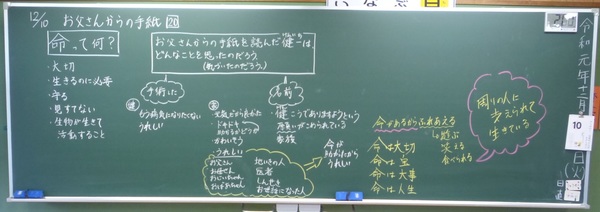 12/10 お父さんからの手紙 20
命って何?
・大切
・生きるのに必要
・守る
・見すてない
・生物が生きて
活動すること
お父さんからの手紙を読んだ健一は、
どんなことを思ったのだろう。
(気づいたのだろう。)
手術した
もう病気になりたくない
うれしい
名前
元気だから良かった
・ドキドキ
かわいそう
・うれしい
お父さん
お母さん
おじいちゃん
おばあちゃん
地いきの人
医者
しんせき
お世話になった人
健こうでありますようにという
願いがこめられている
家族
今が
助かったから
うれしい
命があるからふれあえる
遊ぶ
笑える
食べられる
命は大切
命は宝
命は大事
命は人生
周りの人に
支えられて
生きている
令和元年十二月
10
日(火)
日直